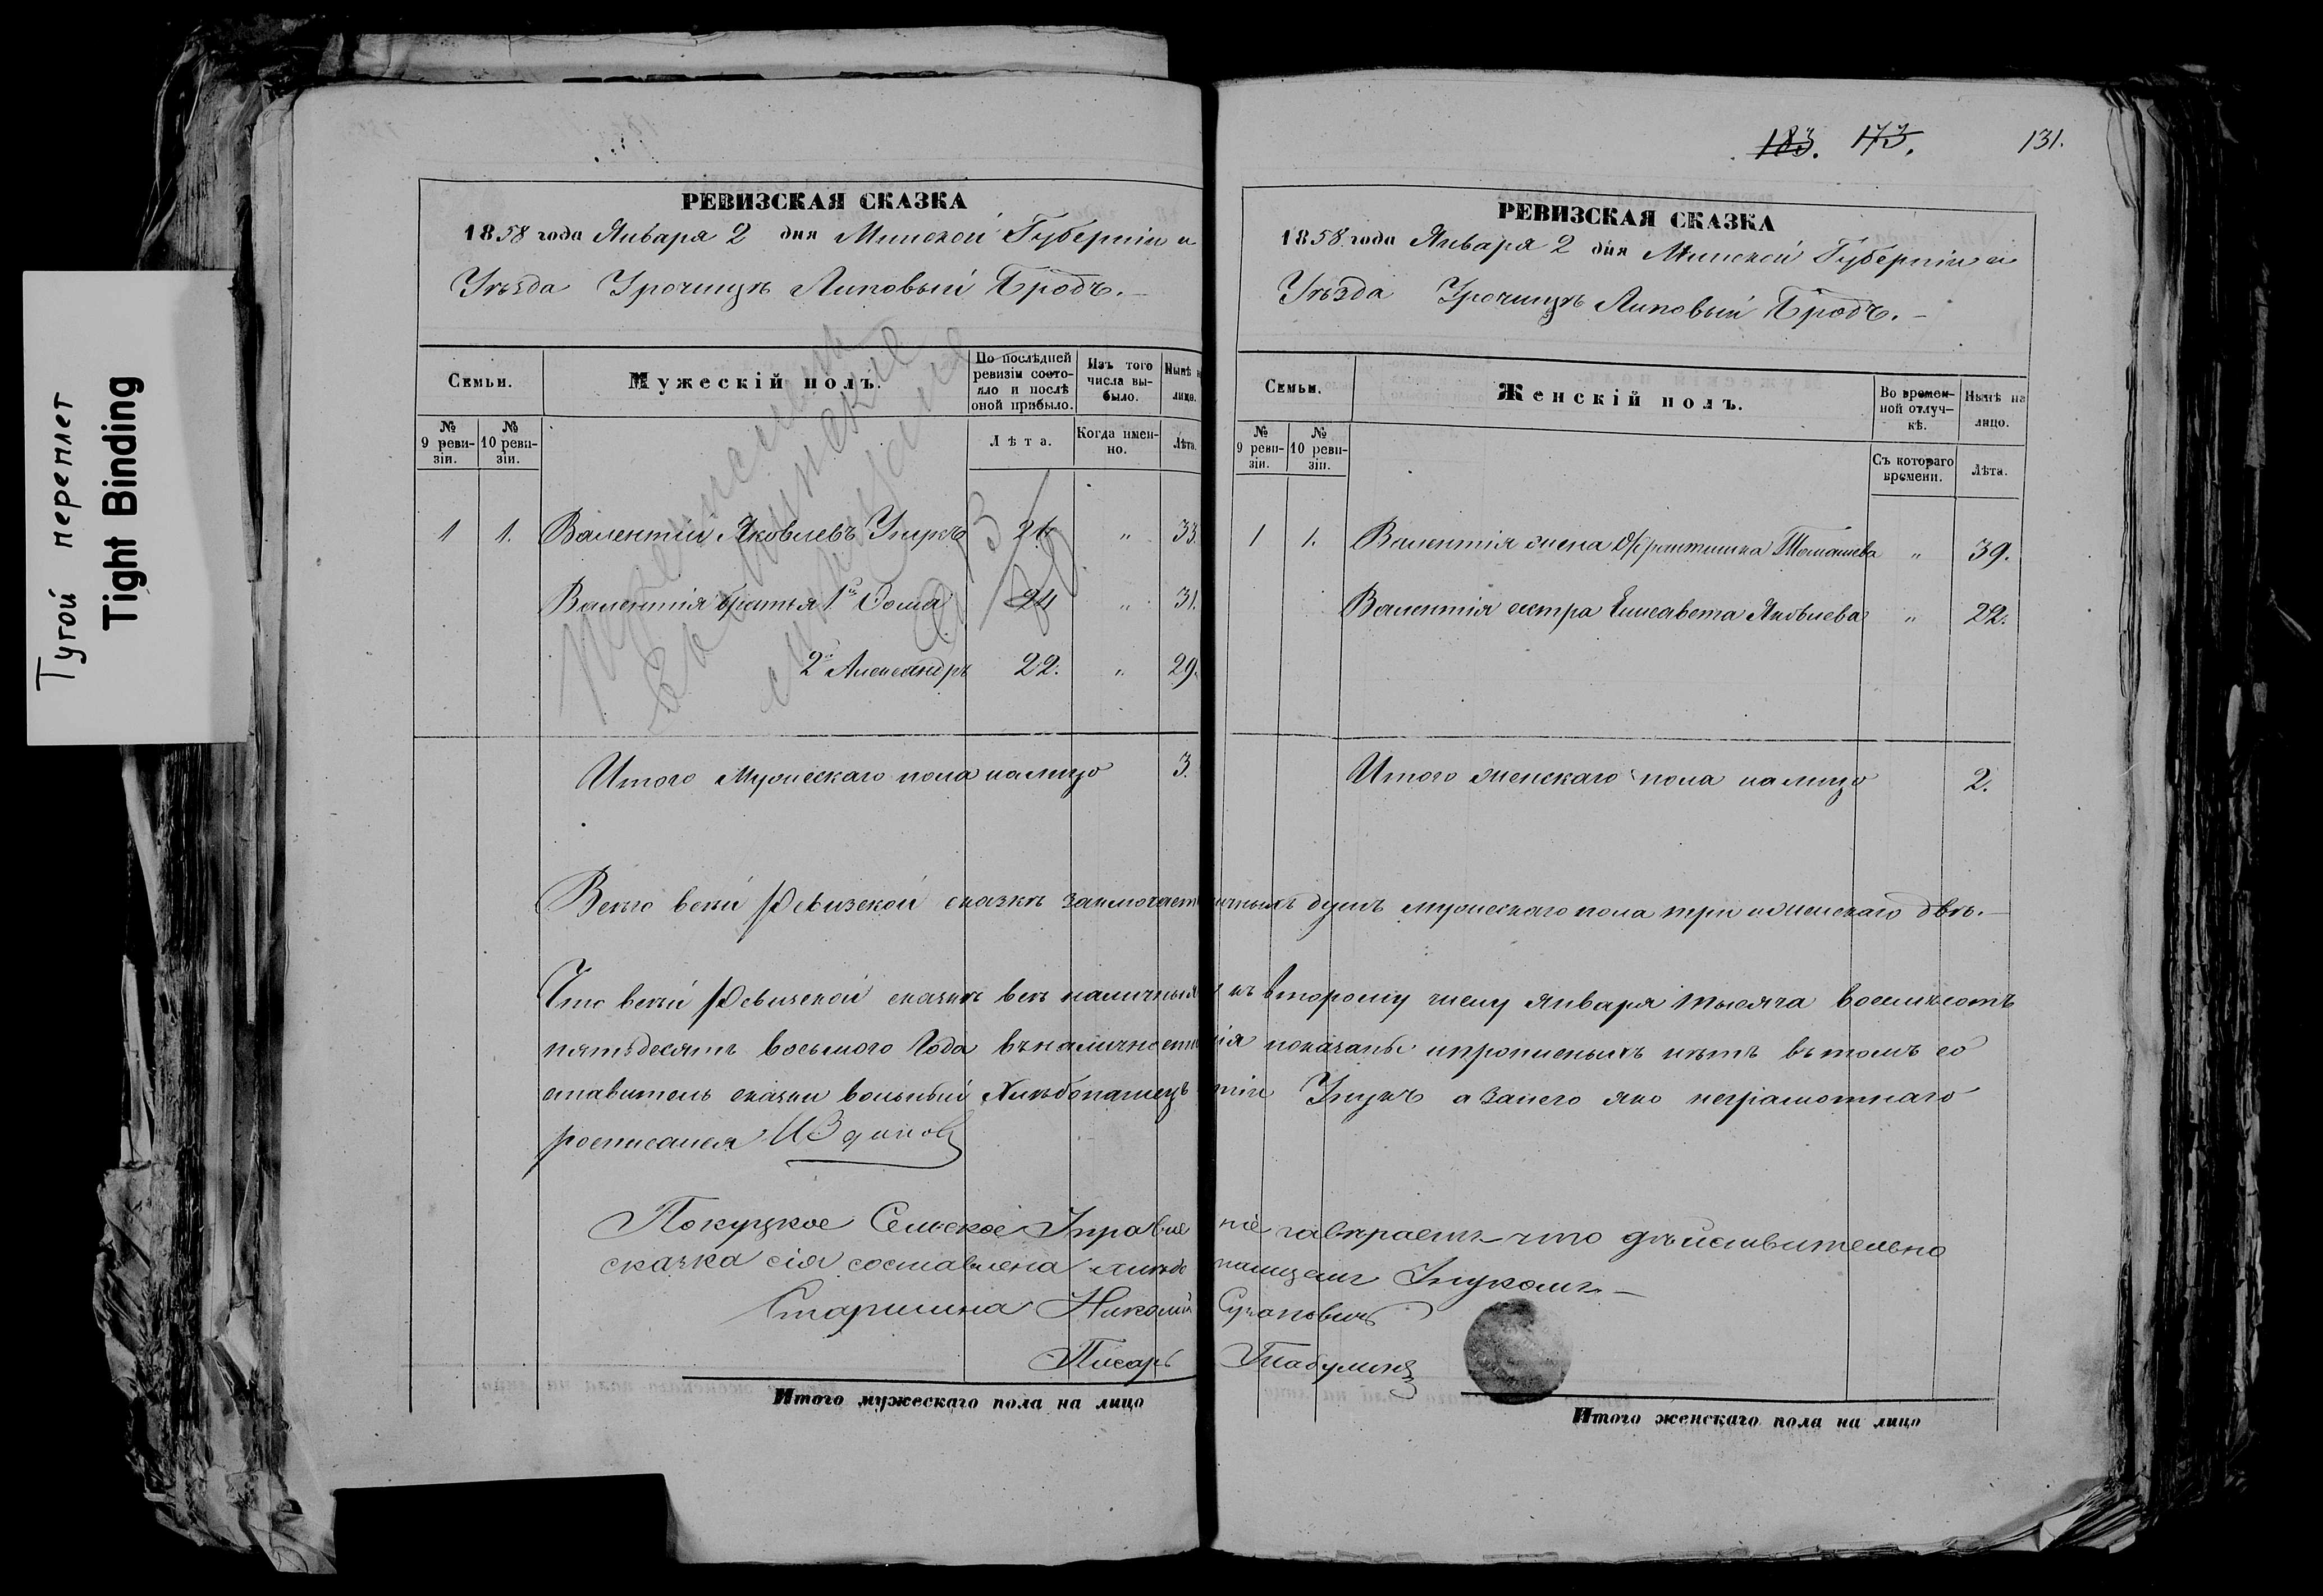 Тугой переплет
Tight Binding
РЕВИЗСКАЯ СКАЗКА
1858 года Января 2 дня Минской Губерніи и
Уѣзда Урочищѣ Липовый Бродъ.
Семьи.
Мужескій полъ.
По послѣдней ревизіи состояло и послѣ оной прибыло.
Изъ того числа выбыло.
Нынѣ н лицо.
№ 9 ревизіи.
№ 10 ревизіи.
Лѣта.
Когда именно.
Лѣта.
1 1. Валентій Яковлевъ 26 " 33.
Валентія братья 1й Фома 24 " 31.
2й Александръ 22. " 29.
Итого мужескаго пола налицо 3.
183. 173. 131.
РЕВИЗСКАЯ СКАЗКА
1858 года Января 2 дня Минской Губерніи и
Уѣзда Урочищѣ Липовый Бродъ.
Семьи.
Женскій полъ.
Во временной отлучкѣ.
Нынѣ на лицо.
№ 9 ревизіи.
№ 10 ревизіи.
Съ котораго времени.
Лѣта.
1 1. Валентія жена Франтишка Томашева " 39.
Валентія сестра Елисавета Яковлева " 22.
Итого женскаго пола налицо 2.
Всего всей Ревизской сказкѣ заключает ичныхъ душъ мужескаго пола три и женскаго двѣ.
Что всей Ревизской сказкѣ всѣ наличныя къ второму числу Января тысяча восемьсотъ
пятьдесятъ восьмого Года въ наличност показаны и прописныхъ нѣтъ въ томъ со
ставитель сказки вольный Хлѣбопашецъ тій а за него яко неграмотнаго
росписался
Покуцкое Сельское Управле ніе завѣраетъ что дѣйствительно
сказка сія составлена хлѣбо пашцемъ
Старшина Николай
Писарь
Итого мужескаго пола на лицо
Итого женскаго пола на лицо